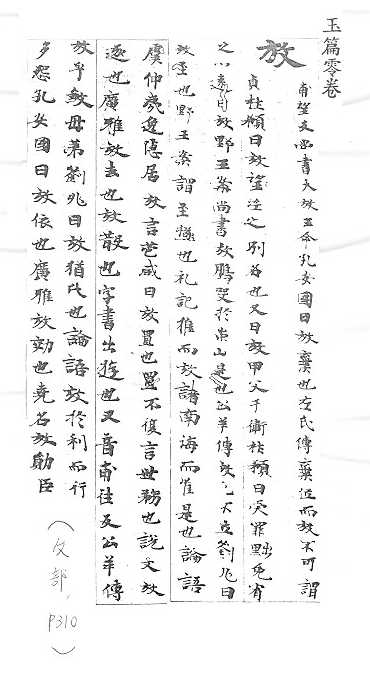 玉篇零卷
放
甫望反尚書大放王命孔安國曰放棄也左氏傳棄位而放不可謂
貞杜預曰放望淫之別名也又曰放甲父于衛杜預曰受罪黜免宥
之以遠曰放野王案尚書放驩兜於崇山是也公羊傳放乚不立劉兆曰
放至也野王案謂至極也礼記推而放諸南海而准是也論語
虞仲夷逸隱居放言苞咸曰放置也置不復言世務也說文放
逐也廣雅放去也放散也字書出遊也又音甫往反公羊傳
放乎殺母弟劉兆曰放猶比也論語放於利而行
多怨孔安國曰放依也廣雅放効也堯名放勛臣
(攴部, P310)